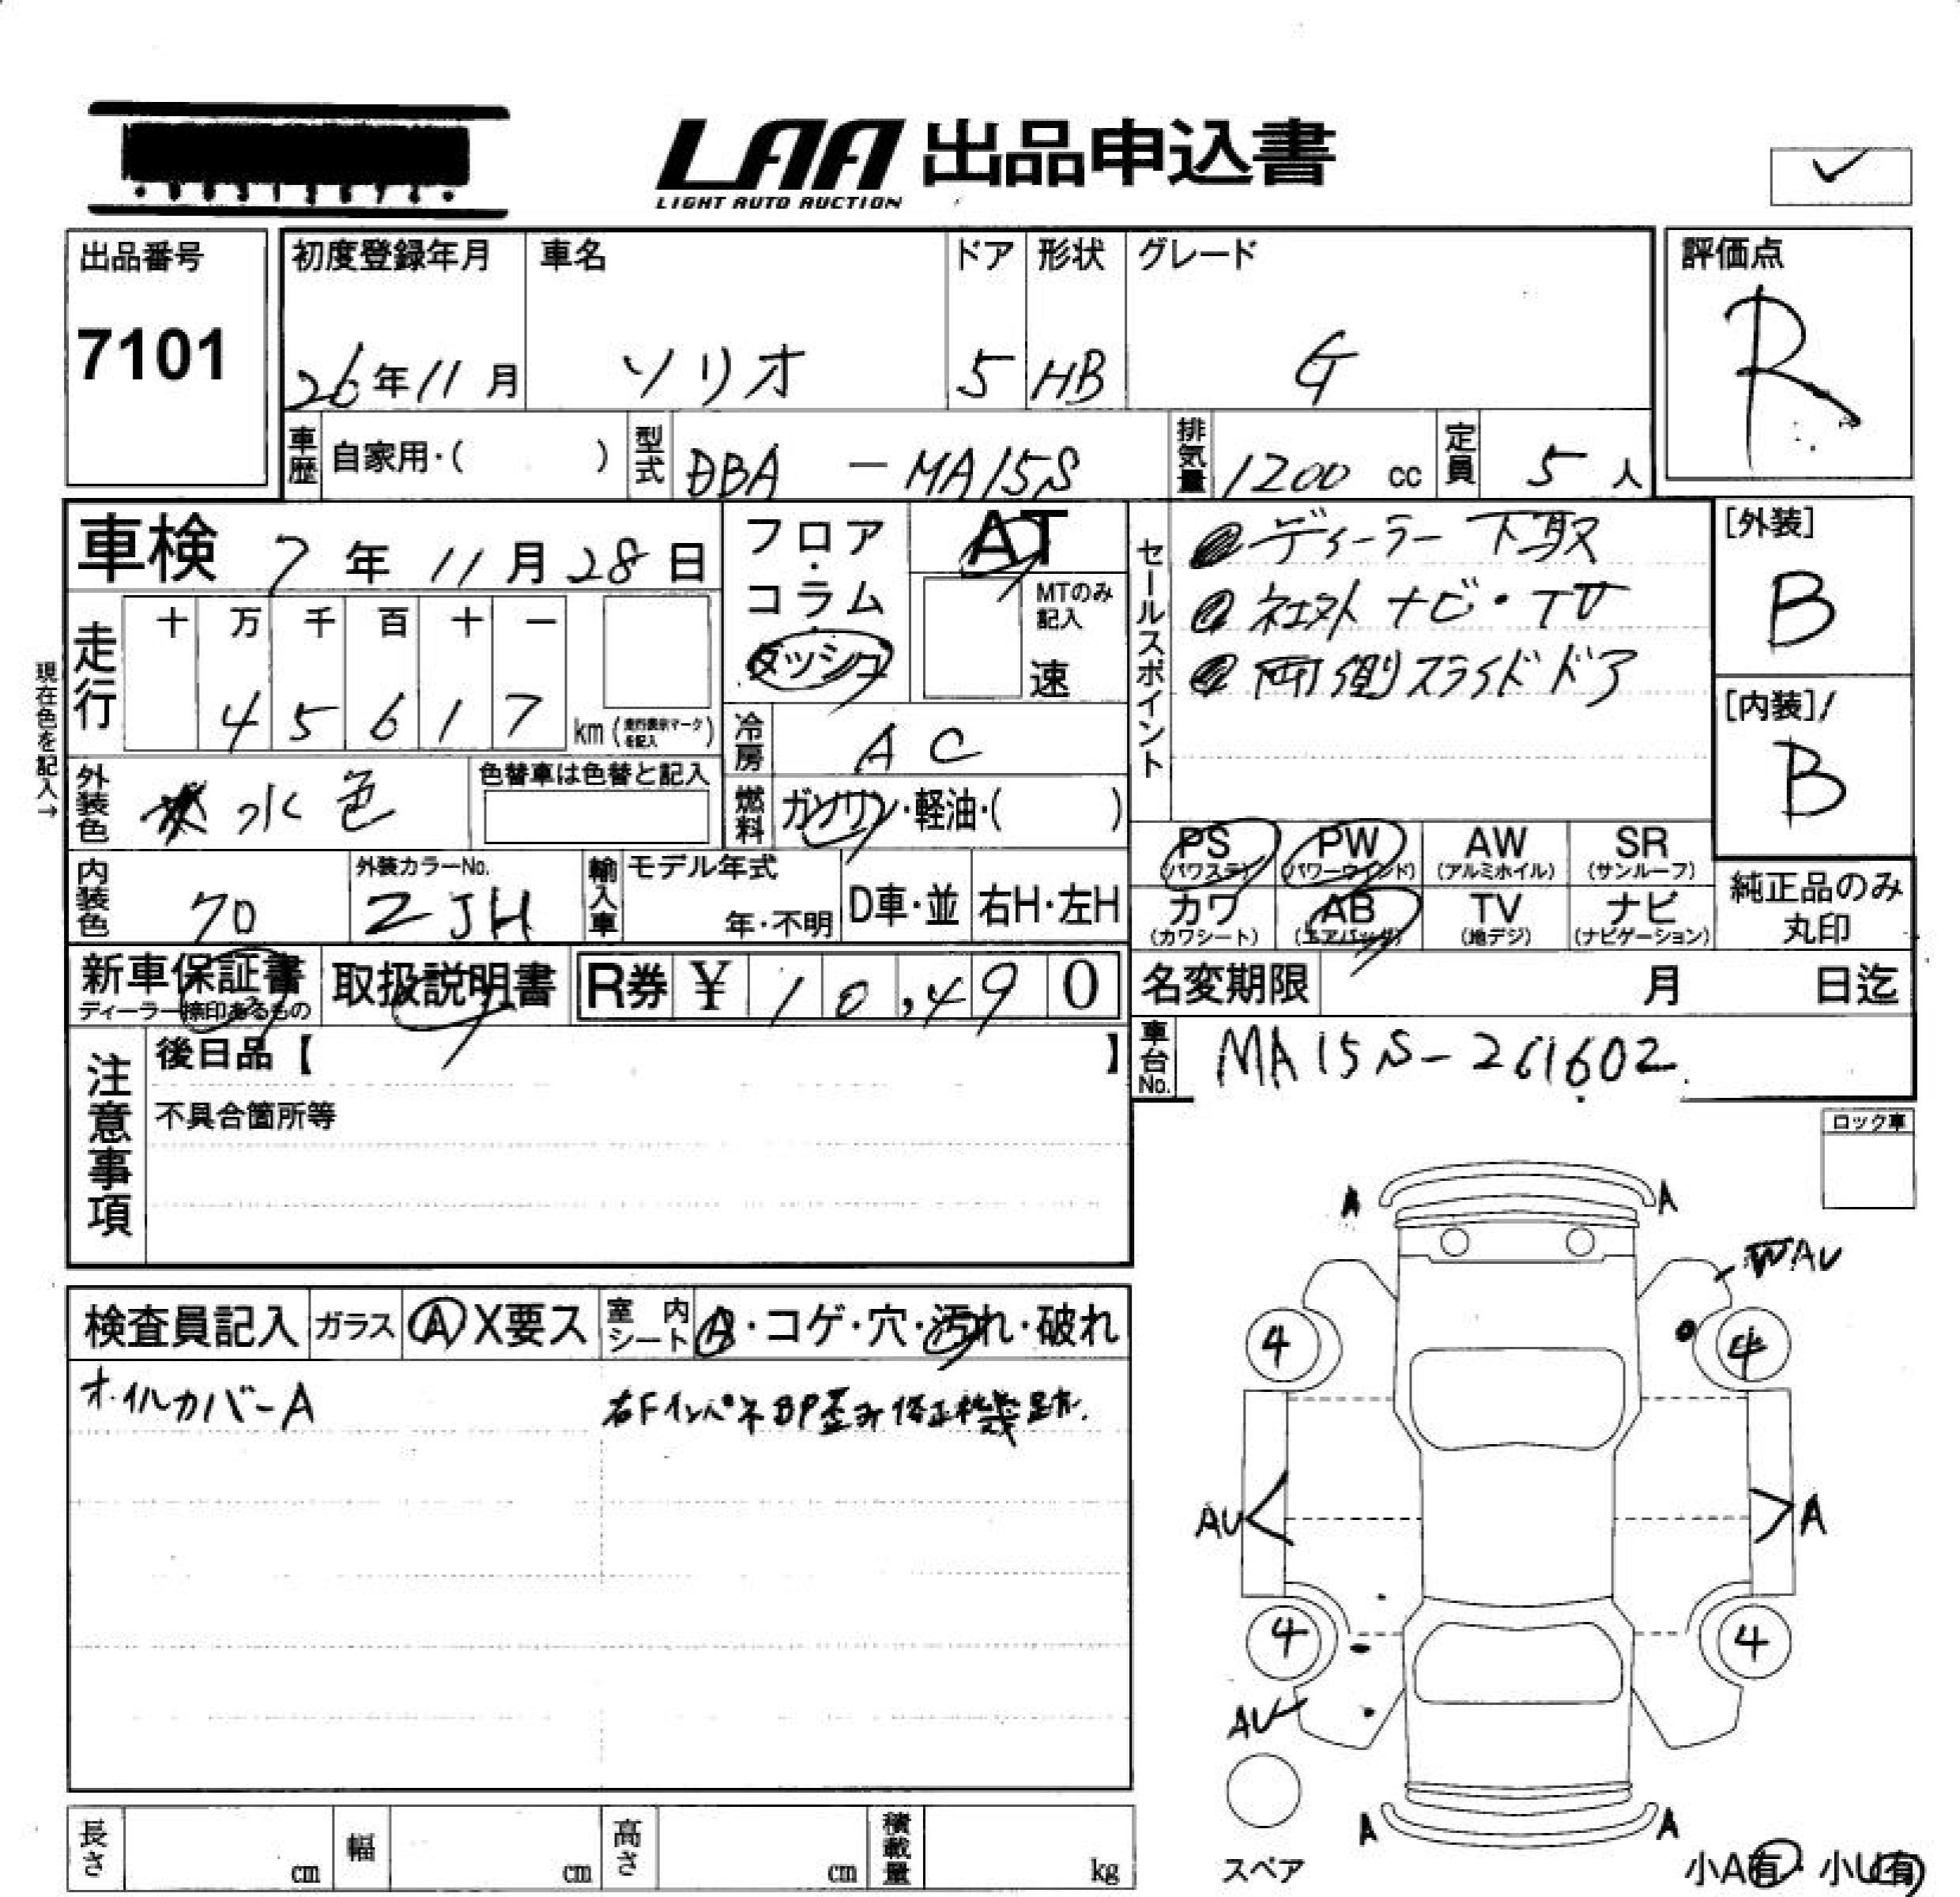 LAA 出品申込書
LIGHT AUTO AUCTION
出品番号
7101
初度登録年月
26年11月
車名
ソリオ
ドア
5
形状
HB
グレード
G
評価点
R
車歴
自家用・( )
型式
DBA - MA15S
排気量
1200 cc
定員
5人
車検 7年11月28日
フロア・コラム・ダッシュ
AT
MTのみ記入
速
セールスポイント
ディーラー下取
社外ナビ・TV
両側スライドドア
[外装]
B
[内装]
B
現在色を記入→
走行
十 万 千 百 十 一
4 5 6 1 7
km (走行表示マークを記入)
冷房
AC
外装色
水色
色替車は色替と記入
燃料
ガソリン・軽油・( )
PS (パワステ)
PW (パワーウインド)
AW (アルミホイル)
SR (サンルーフ)
カワ (カワシート)
AB (エアバッグ)
TV (地デジ)
ナビ (ナビゲーション)
純正品のみ丸印
内装色
70
外装カラーNo.
ZJH
輸入車
モデル年式
年・不明
D車・並
右H・左H
新車保証書
ディーラー捺印あるもの
取扱説明書
R券 ¥ 10,490
名変期限 月 日迄
車台No.
MA15S-261602
注意事項
後日品【 】
不具合箇所等
ロック車
検査員記入
ガラス
A X要ス
室内シート
A・コゲ・穴・汚れ・破れ
オイルカバーA
右FインパネBP歪み修正機跡.
A
A
WAU
4
4
AU
A
4
4
AU
A
A
スペア
小A有・小U有
長さ cm
幅 cm
高さ cm
積載量 kg